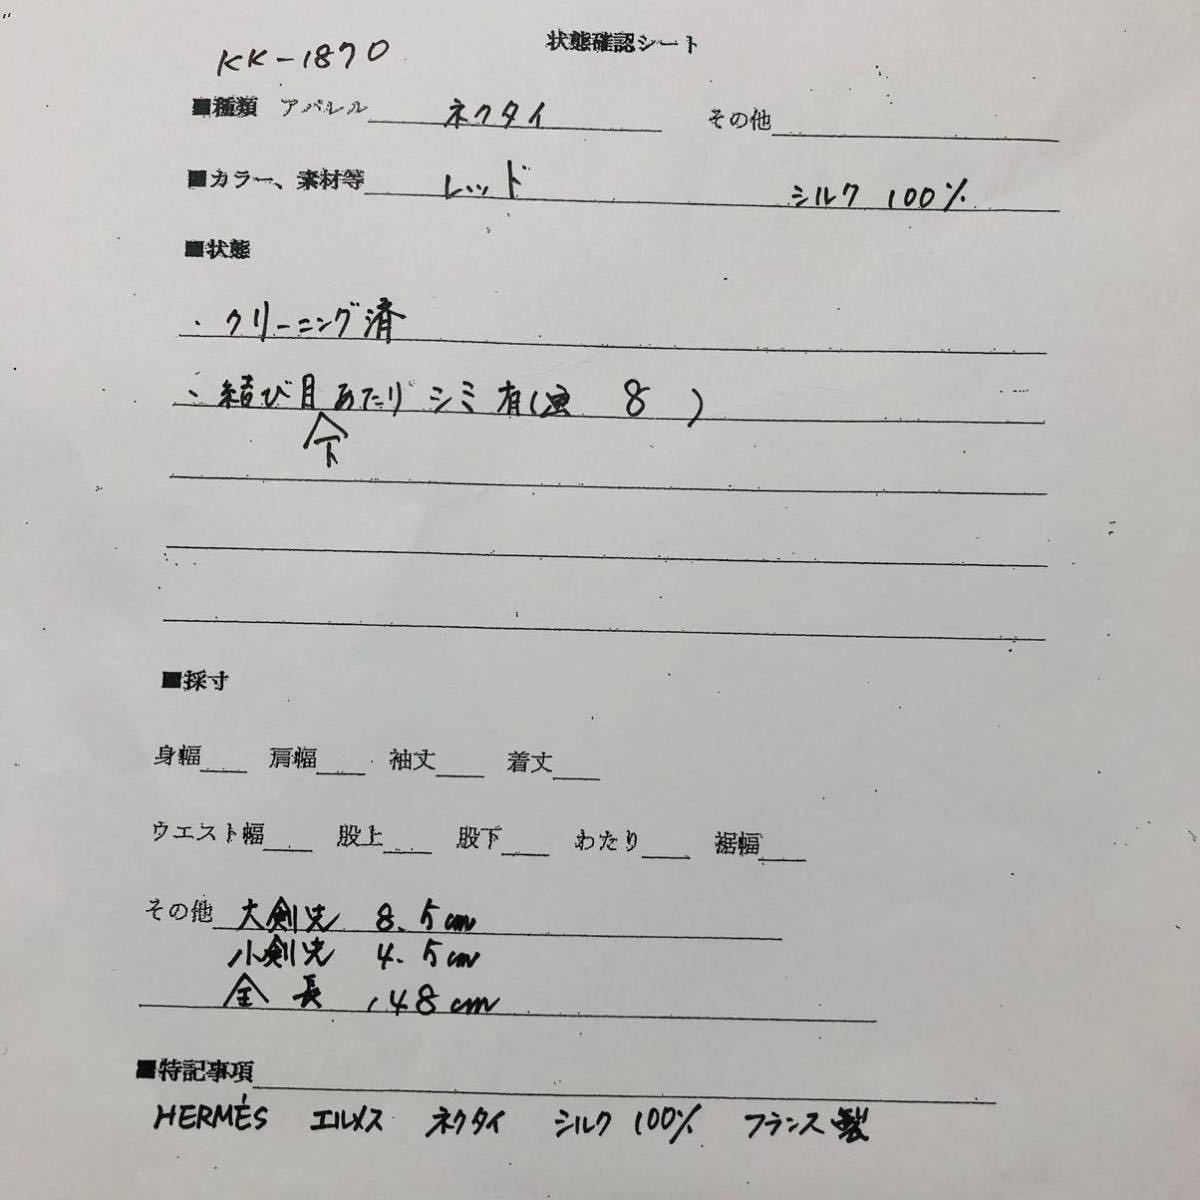 状態確認シート
KK-1870
■種類 アパレル ネクタイ その他
■カラー、素材等 レッド シルク 100%
■状態
・クリーニング済
・結び目下あたりシミ有( 8 )
■採寸
身幅 肩幅 袖丈 着丈
ウエスト幅 股上 股下 わたり 裾幅
その他 大剣先 8.5cm
小剣先 4.5cm
全長 148cm
■特記事項
HERMÉS エルメス ネクタイ シルク 100% フランス製